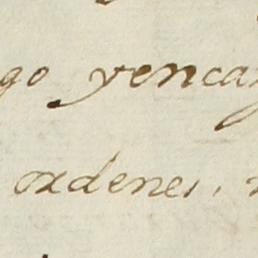 go yenca
ordenes,